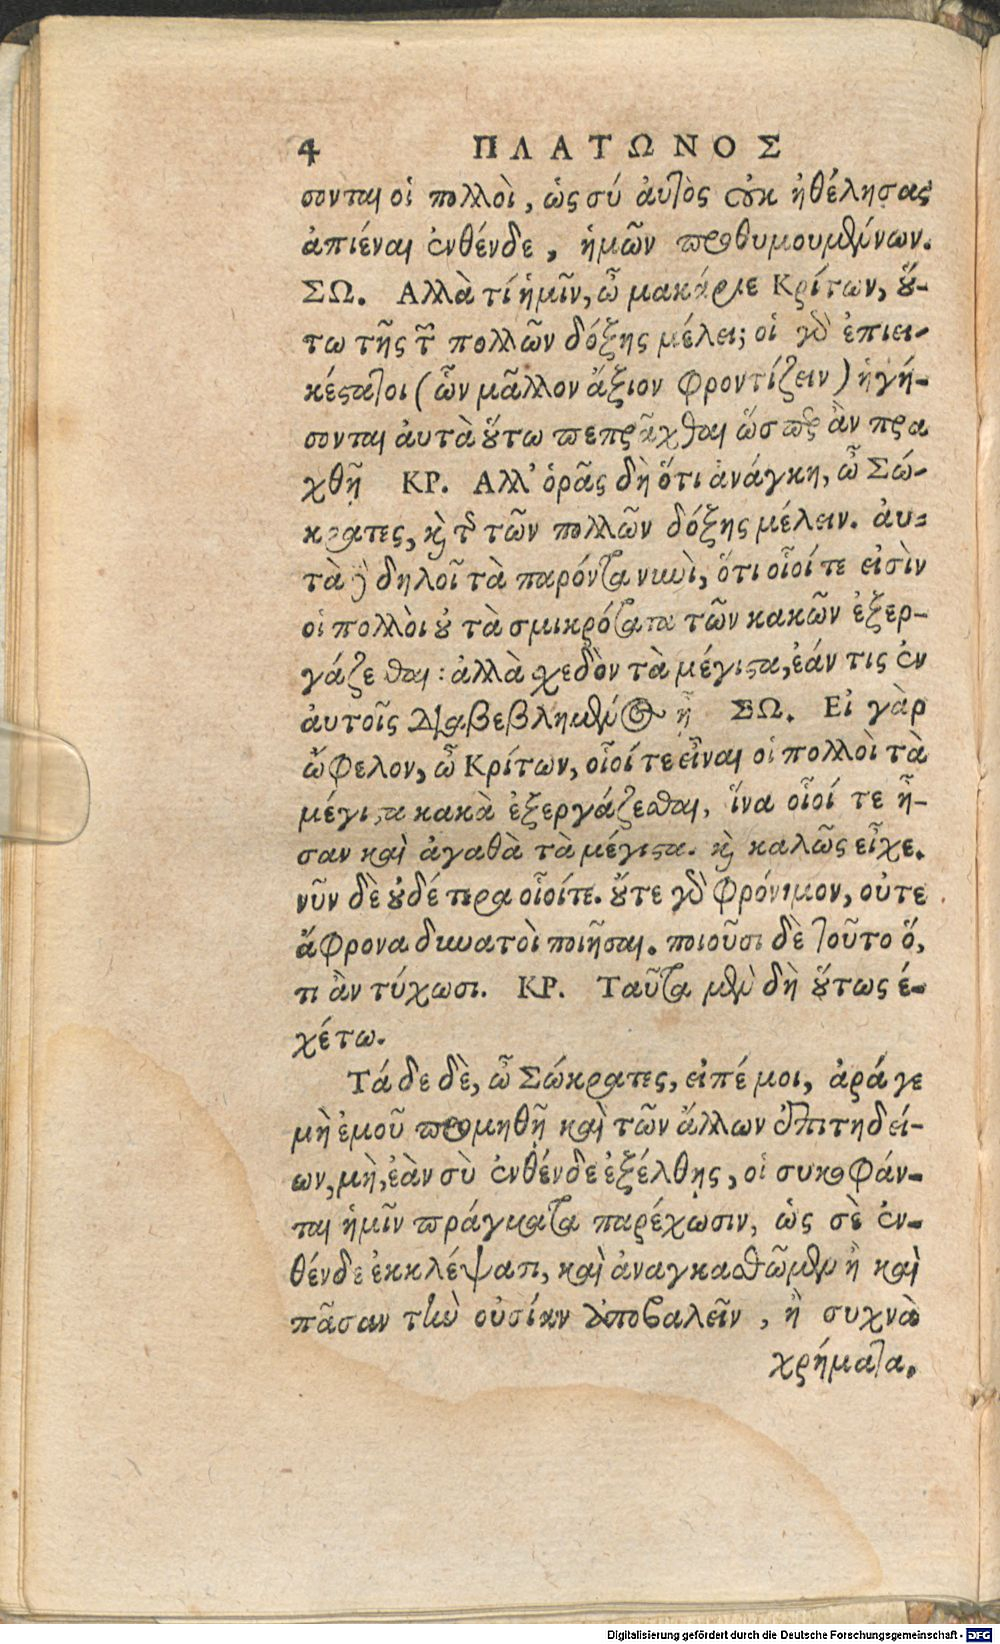 4 ΠΛΑΤΩΝΟΣ
σονται οἱ πολλοὶ, ὡς σύ ἀυτὸς οὐκ ἠθέλησας
ἀπιέναι ἐνθένδε, ἡμῶν προθυμουμένων.
ΣΩ. Αλλὰ τί ἡμῖν, ὦ μακάριε Κρίτων, ὕ-
τω τῆς τῶν πολλῶν δόξης μέλει; οἱ γὸ ἐπιει-
κέςατοι (ὧν μᾶλλον ἄξιον φροντίζειν) ἡγή-
σονται ἀυτὰ ὅυτω πεπρᾶχθαι ὥσπερ ἂν πρα
χθῇ ΚΡ. Αλλ' ὁρᾷς δὴ ὅτι ἀνάγκη, ὦ Σώ-
κρατες, καὶ τῆς τῶν πολλῶν δόξης μέλειν. ἀυ-
τὰ δὲ δηλοῖ τὰ παρόντα νυνὶ, ὅτι οἷοί τε εἰσὶν
οἱ πολλὸι ȣ τὰ σμικρότατα τῶν κακῶν ἐξερ-
γάζεσθαι: ἀλλὰ σχεδὸν τὰ μέγιςα, ἐάν τις ἐν
ἀυτοῖς διαβεβλημένος ᾖ ΣΩ. Εἰ γὰρ
ὤφελον, ὦ Κρίτων, οἷοί τε εἶναι οἱ πολλοὶ τὰ
μέγιςα κακὰ ἐξεργάζεσθαι, ἵνα οἷοί τε ἦ-
σαν καὶ ἀγαθὰ τὰ μέγιςα. καὶ καλῶς εἶχε.
νῦν δὲ ȣδέτερα οἷοίτε. ȣτε γὸ φρόνιμον, οὐτε
ἄφρονα δυνατοὶ ποιῆσαι. ποιοῦσι δὲ τοῦτο ὅ,
τι ἂν τύχωσι. ΚΡ. Ταῦτα μὲν δὴ ȣτως ἐ-
χέτω.
Τάδε δὲ, ὦ Σώκρατες, εἰπέ μοι, ἀράγε
μὴ ἐμοῦ προμηθῇ καὶ τῶν ἄλλων ἐπιτηδεί-
ων, μὴ, ἐὰν σὺ ἐνθένδε ἐξέλθῃς, οἱ συκοφάν-
ται ἡμῖν πράγματα παρέχωσιν, ὡς σὲ ἐν-
θένδε ἐκκλέψασι, καὶ ἀναγκασθῶμεν ἢ καὶ
πᾶσαν τὴν οὐσίαν ἀποβαλεῖν, ἢ συχνὰ
χρήματα.
Digitalisierung gefördert durch die Deutsche Forschungsgemeinschaft - DFG